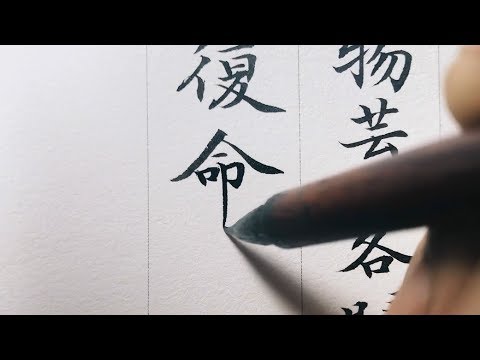 物芸各
復命